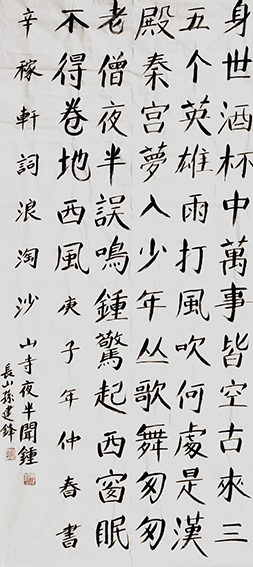 身世酒杯中萬事皆空古來三
五个英雄雨打風吹何處是漢
殿秦宫夢入少年丛歌舞匆匆
老僧夜半誤鳴鍾驚起西窗眠
不得卷地西風 庚子年仲春書
辛稼軒詞浪淘沙 山寺夜半聞鍾
長山孫建鋒